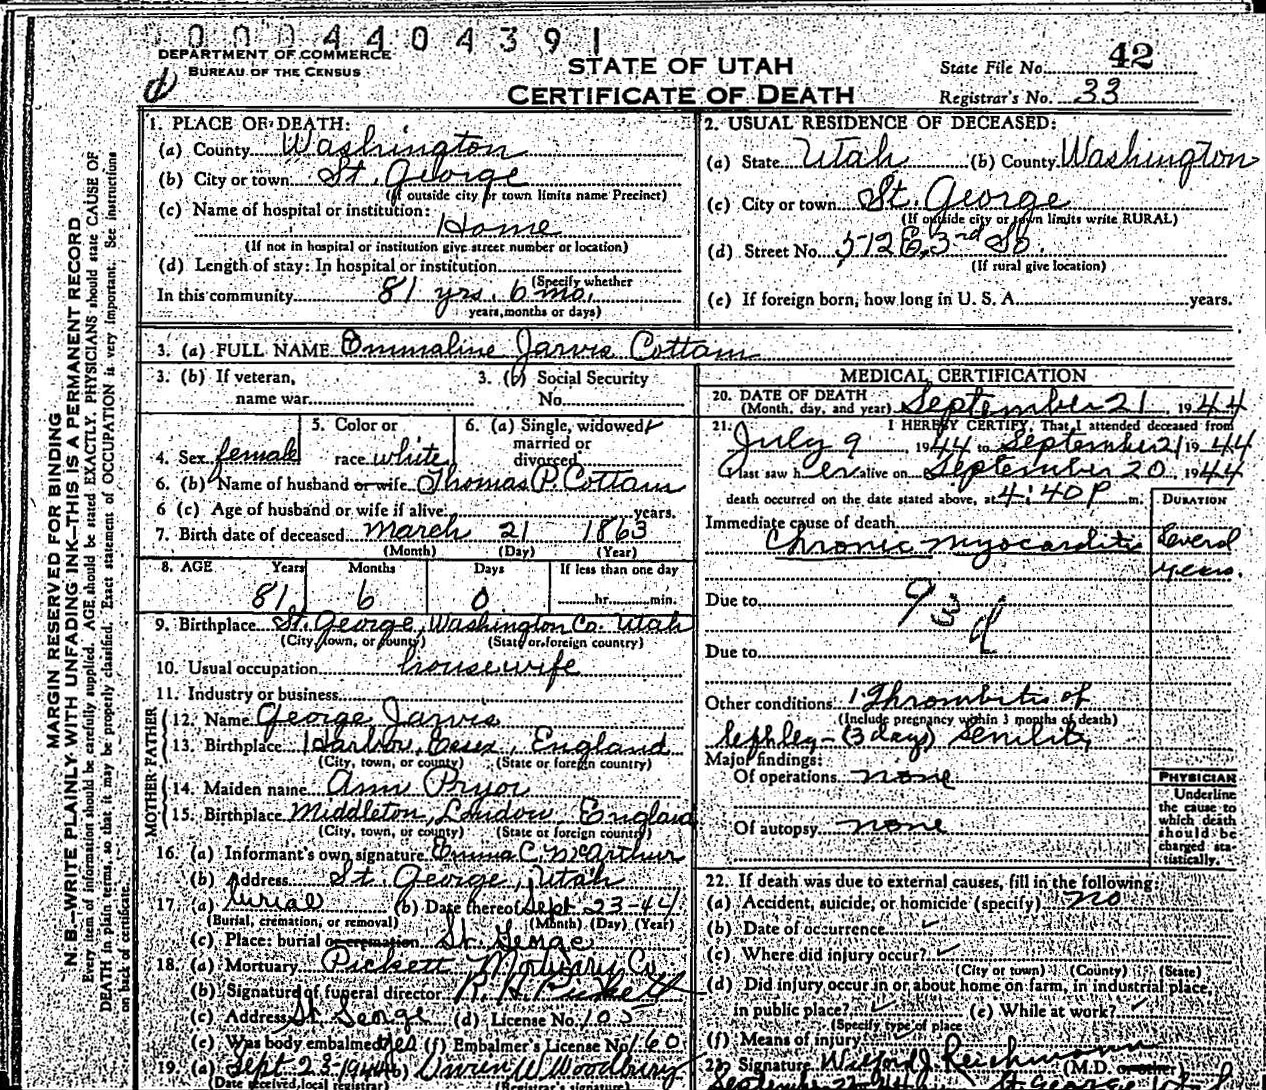 0004404391
DEPARTMENT OF COMMERCE
BUREAU OF THE CENSUS
STATE OF UTAH
CERTIFICATE OF DEATH
State File No. 42
Registrar's No. 33
MARGIN RESERVED FOR BINDING
N. B.—WRITE PLAINLY WITH UNFADING INK—THIS IS A PERMANENT RECORD
Every item of information should be carefully supplied. AGE should be stated EXACTLY. PHYSICIANS should state CAUSE OF
DEATH in plain terms, so that it may be properly classified. Exact statement of OCCUPATION is very important. See instructions
on back of certificate.
1. PLACE OF DEATH:
(a) County Washington
(b) City or town St. George
(If outside city or town limits name Precinct)
(c) Name of hospital or institution:
Home
(If not in hospital or institution give street number or location)
(d) Length of stay: In hospital or institution
(Specify whether
In this community 81 yrs. 6 mo.
years, months or days)
2. USUAL RESIDENCE OF DECEASED:
(a) State Utah (b) County Washington
(c) City or town St. George
(If outside city or town limits write RURAL)
(d) Street No. 512 E. 3rd So.
(If rural give location)
(e) If foreign born, how long in U. S. A. years.
3. (a) FULL NAME Emmaline Jarvis Cottam
3. (b) If veteran, name war
3. (c) Social Security No.
4. Sex female
5. Color or race white
6. (a) Single, widowed ✓ married or divorced
6. (b) Name of husband or wife Thomas P. Cottam
6 (c) Age of husband or wife if alive years.
7. Birth date of deceased March 21 1863
(Month) (Day) (Year)
8. AGE Years Months Days If less than one day
81 6 0 hr. min.
9. Birthplace St. George, Washington Co. Utah
(City, town, or county) (State or foreign country)
10. Usual occupation housewife
11. Industry or business
FATHER
12. Name George Jarvis
13. Birthplace Harlow, Essex, England
(City, town, or county) (State or foreign country)
MOTHER
14. Maiden name Ann Pryor
15. Birthplace Middleton, London, England
(City, town, or county) (State or foreign country)
16. (a) Informant's own signature Emma C. McArthur
(b) Address St. George, Utah
17. (a) burial (b) Date thereof Sept. 23-44
(Burial, cremation, or removal) (Month) (Day) (Year)
(c) Place: burial or cremation St. George
18. (a) Mortuary Pickett Mortuary Co
(b) Signature of funeral director
(c) Address St George (d) License No. 105
(e) Was body embalmed yes (f) Embalmer's License No. 160
19. (a) Sept 23-1944 (b) Woodbury
(Date received, local registrar) (Registrar's signature)
MEDICAL CERTIFICATION
20. DATE OF DEATH
(Month, day, and year) September 21, 1944
21. I HEREBY CERTIFY, That I attended deceased from
July 9 1944 to September 21 1944
I last saw her alive on September 20 1944
death occurred on the date stated above, at 4:40 P m.
DURATION
Immediate cause of death
Chronic Myocarditis
Several years.
Due to
Due to
Other conditions 1. Thrombitis of
(Include pregnancy within 3 months of death)
left leg - (3 day) Senility
Major findings:
Of operations none
Of autopsy none
PHYSICIAN
Underline
the cause to
which death
should be
charged sta-
tistically.
22. If death was due to external causes, fill in the following:
(a) Accident, suicide, or homicide (specify) no
(b) Date of occurrence ✓
(c) Where did injury occur? ✓
(City or town) (County) (State)
(d) Did injury occur in or about home on farm, in industrial place,
in public place? ✓ (e) While at work? ✓
(Specify type of place
(f) Means of injury
Signature Wilford J. Reichmann (M.D. or other)